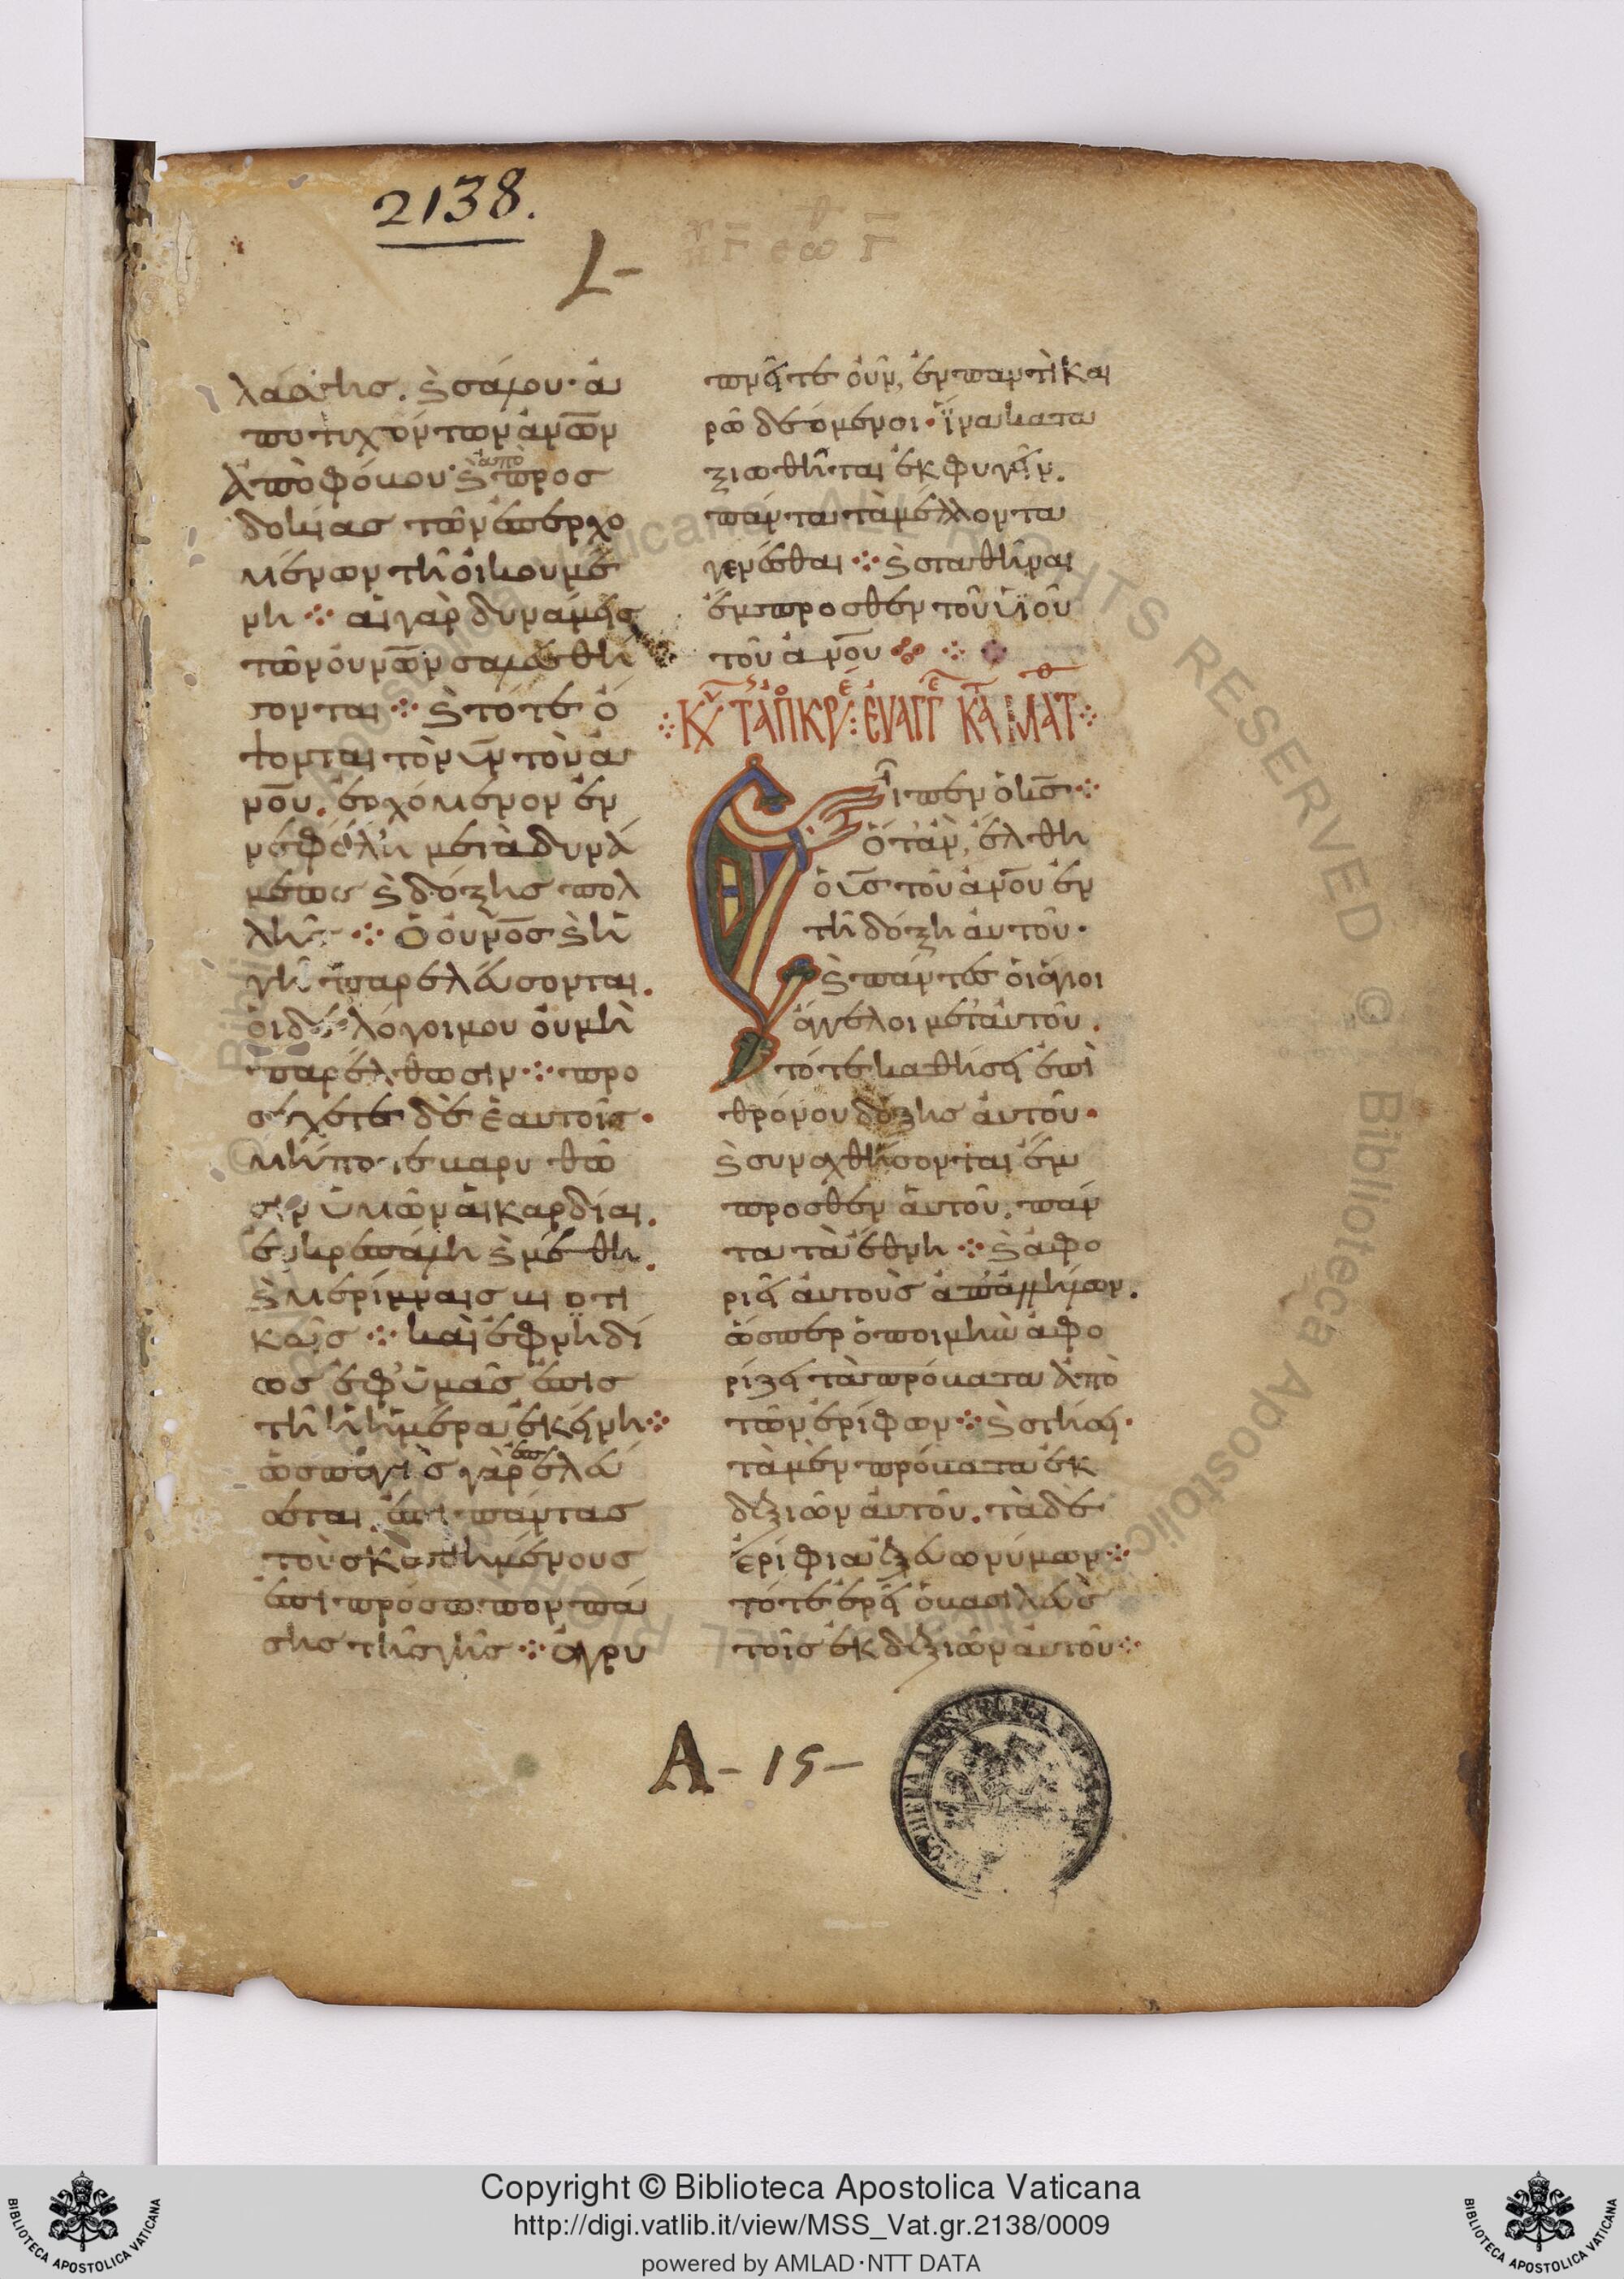 2138.
L-
λάσσης. ϗ σάλου· ἀ
ποψυχόντων ἀνῶν
ἀπὸ φόβου· ϗ προσ
δοκίας τῶν ἐπερχο
μένων τῆ οἰκουμέ
νη ⁘ αἱ γὰρ δυνάμεις
τῶν οὐνῶν σαλευθή
σονται ⁘ ϗ τότε ὄ
ψονται τὸν ῡν τοῦ ἀ
νοῦ. ἐρχόμενον ἐν
νεφέλη μετὰ δυνά
μεως ϗ δόξης πολ
λῆς ⁘ ὁ οὐνος ϗ ἡ
γῆ παρελεύσονται.
οἱ δὲ λόγοι μου οὐ μὴ
παρέλθωσιν ⁘ προ
σέχετε δὲ ἑαυτοῖς·
μήποτε βαρυνθῶ
σιν ὑμῶν αἱ καρδίαι.
ἐν κρεπάλη ϗ μέθη.
ϗ μερίμναις βιοτι
καῖς ⁘ καὶ ἐφνηδί
ως ἐφ' ὑμᾶς ἐπισ
τῆ ἡ ἡμέρα ἐκείνη ⁘
ὡς παγὶς γὰρ ἐπελεύ
σεται. ἐπὶ πάντας
τοὺς καθημένους
ἐπὶ πρόσωπον πά
σης τῆς γῆς ⁘ ἀγρυ
πνεῖτε οὖν, ἐν παντὶ και
ρῶ δεόμενοι· ἵνα κατα
ξιωθῆται ἐκφυγεῖν.
πάντα τὰ μέλλοντα
γενέσθαι ⁘ ϗ σταθῆναι
ἔμπροσθεν τοῦ ὑιοῦ
τοῦ ἀνου ⁘ ⁘
⁘ ΚΥ ΤΑΠΚΡ ⁝ ΕΥΑΓΓ ΚΑ ΜΑΤ ⁘
Εἶπεν ὁ κς ⁘
ὅταν, ἔλθη
ὁ ις τοῦ ἀνου ἐν
τῆ δόξη αὐτοῦ·
ϗ πάντες οἱ ἅγιοι
ἄγγελοι μετ' αὐτοῦ.
τότε καθίσει ἐπὶ
θρόνου δόξης αὐτοῦ·
ϗ συναχθήσονται ἔμ
προσθεν αὐτοῦ. πάν
τα τὰ ἔθνη ⁘ ϗ ἀφο
ριεῖ αὐτοὺς ἀπ' ἀλλήλων.
ὥσπερ ὁ ποιμὴν ἀφο
ρίζει τὰ πρόβατα ἀπὸ
τῶν ἐρίφων ⁘ ϗ στήσει·
τὰ μὲν πρόβατα ἐκ
δεξιῶν αὐτοῦ. τὰ δὲ
ἐρίφια ἐξ εὐωνύμων ⁘
τότε ἐρεῖ ὁ βασιλεὺς
τοῖς ἐκ δεξιῶν αὐτοῦ ⁘
A - 15 -
Copyright © Biblioteca Apostolica Vaticana
http://digi.vatlib.it/view/MSS_Vat.gr.2138/0009
powered by AMLAD·NTT DATA